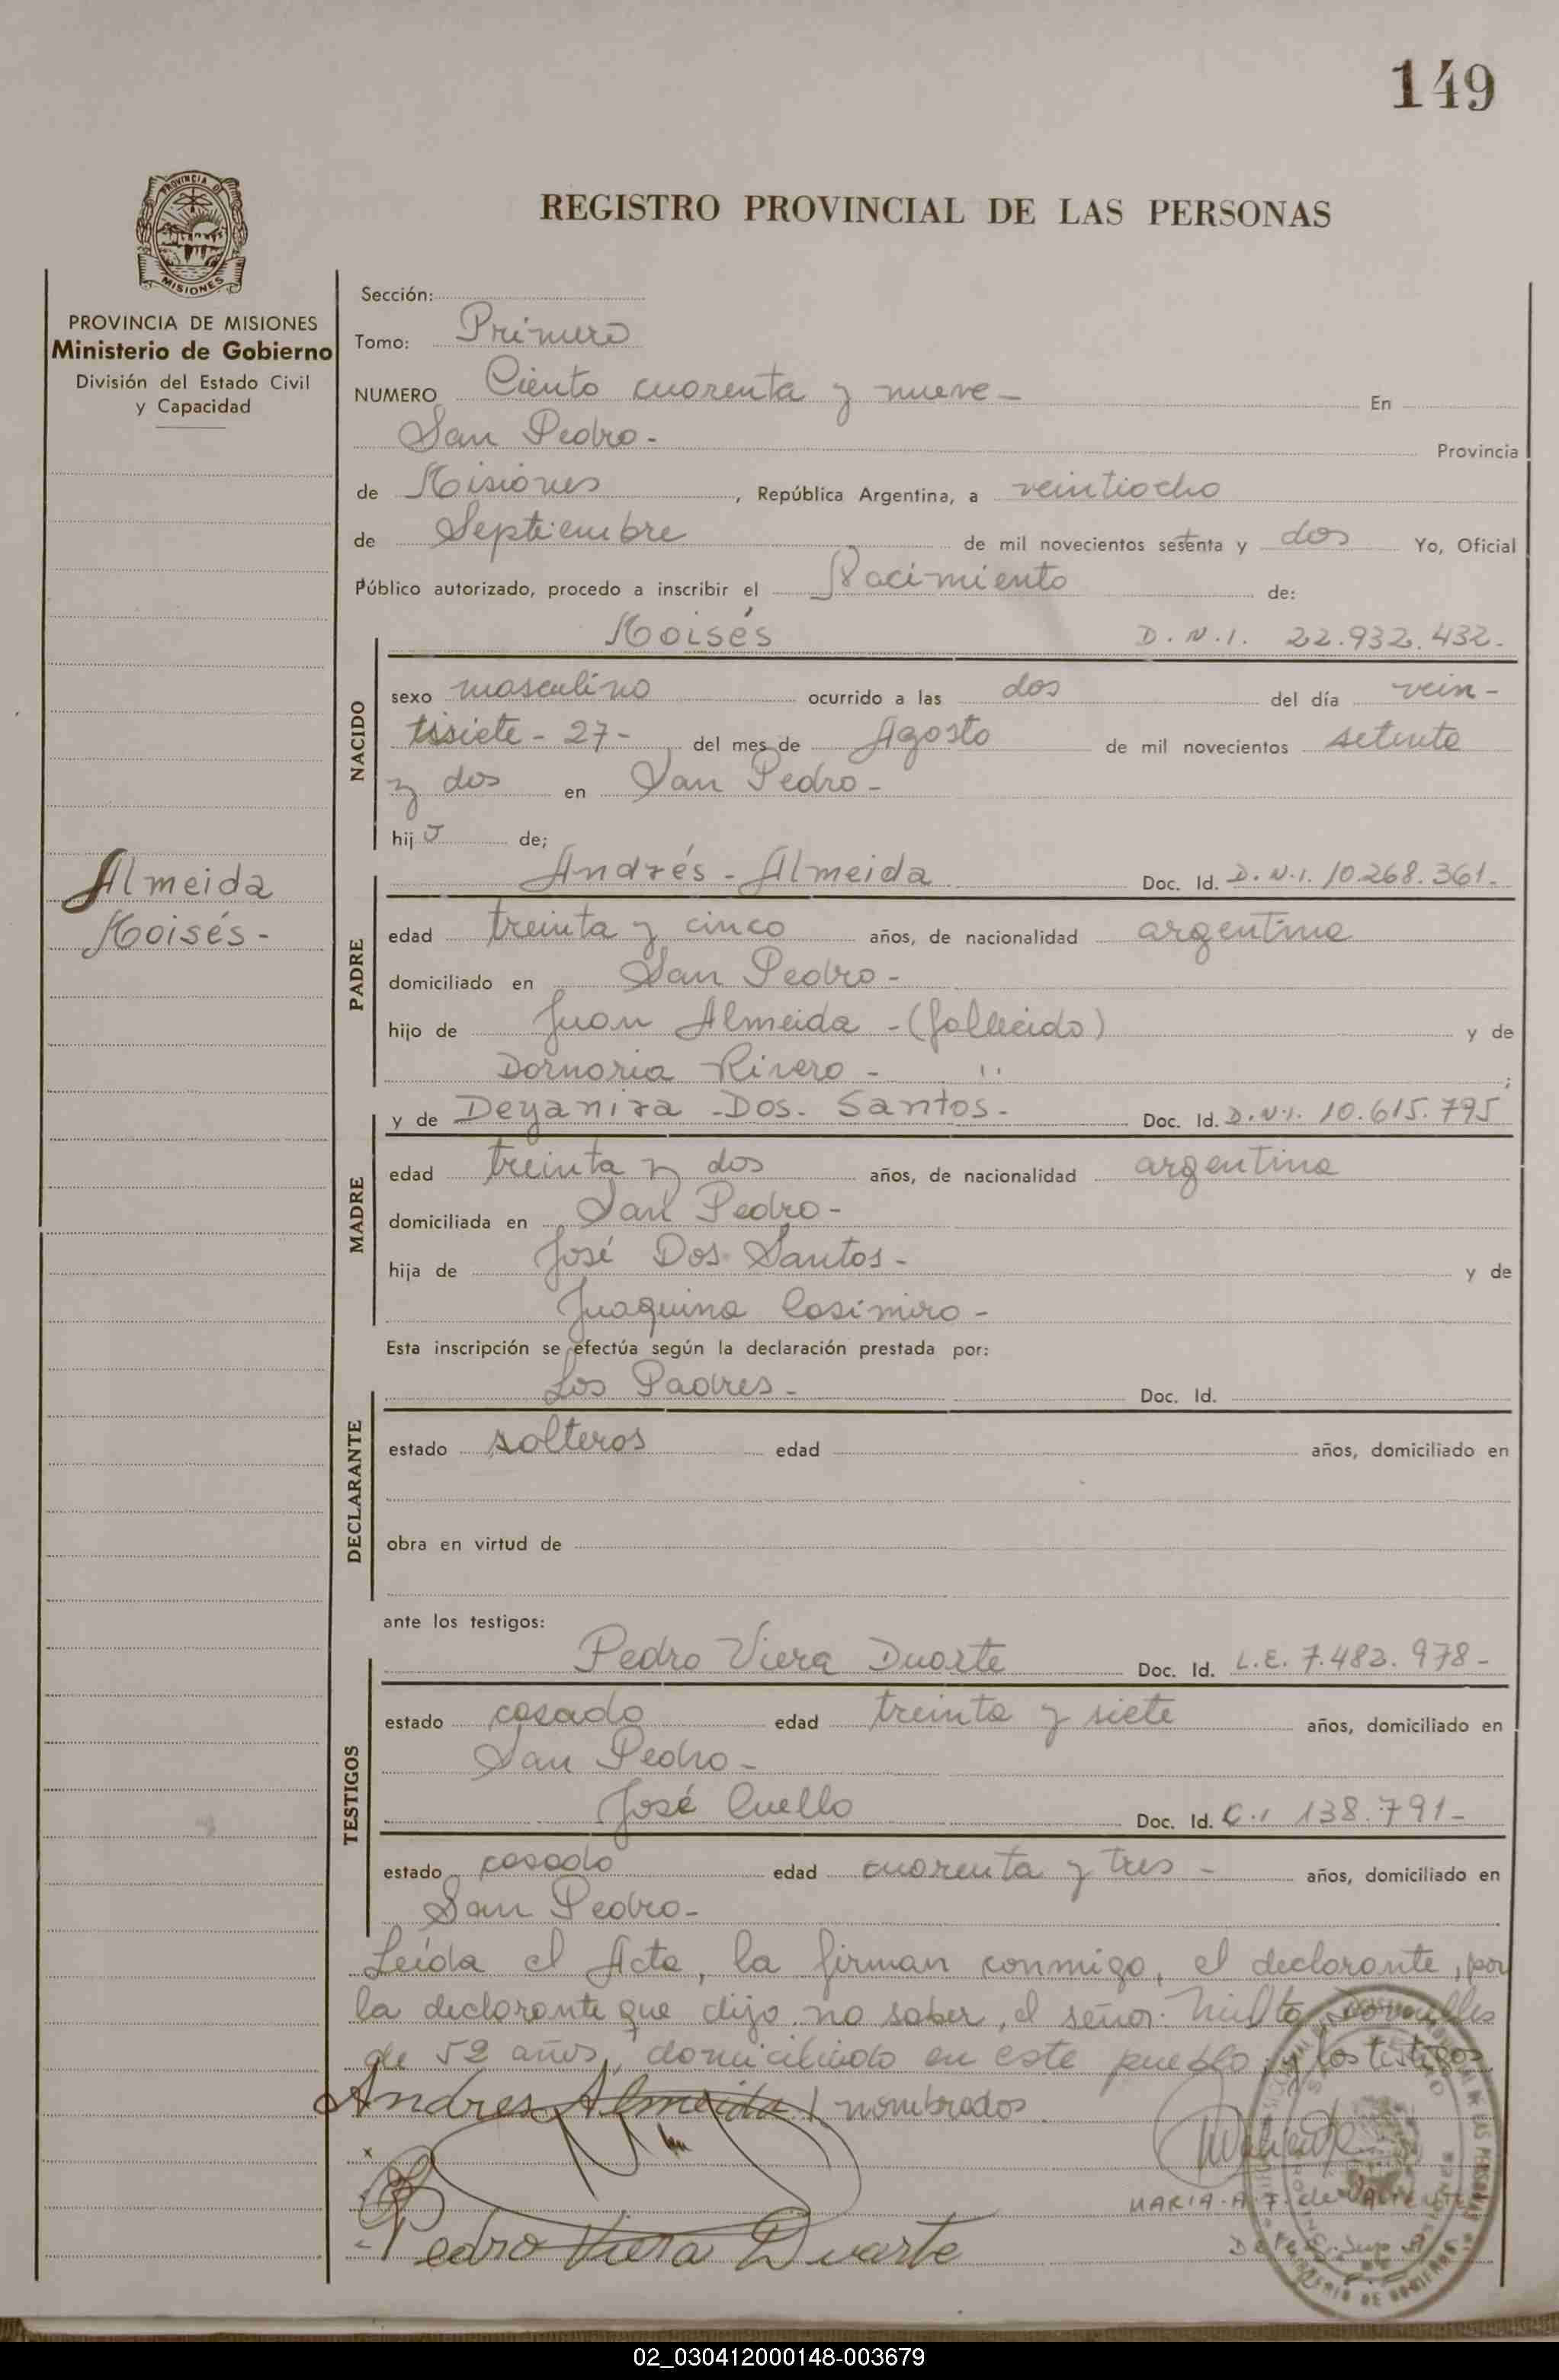 149
PROVINCIA DE
MISIONES
REGISTRO PROVINCIAL DE LAS PERSONAS
PROVINCIA DE MISIONES
Ministerio de Gobierno
División del Estado Civil
y Capacidad
Almeida
Moisés -
Sección:
Tomo: Primero
NUMERO Ciento cuarenta y nueve - En
San Pedro - Provincia
de Misiones, República Argentina, a veintiocho
de Septiembre de mil novecientos setenta y dos Yo, Oficial
Público autorizado, procedo a inscribir el Nacimiento de:
Moisés D.N.I. 22.932.432.-
NACIDO
sexo masculino ocurrido a las dos del día vein-
tisiete - 27 - del mes de Agosto de mil novecientos setenta
y dos en San Pedro -
hijo de;
Andrés - Almeida Doc. Id. D.N.I. 10.268.361.-
PADRE
edad treinta y cinco años, de nacionalidad argentina
domiciliado en San Pedro -
hijo de Juan Almeida - (fallecido) y de
Dornoria Rivero - ;
y de Deyanira - Dos - Santos - Doc. Id. D.N.I. 10.615.795
MADRE
edad treinta y dos años, de nacionalidad argentina
domiciliada en San Pedro -
hija de José Dos Santos - y de
Juaquina Casimiro -
Esta inscripción se efectúa según la declaración prestada por:
Los Padres - Doc. Id.
DECLARANTE
estado solteros edad años, domiciliado en
obra en virtud de
ante los testigos:
Pedro Viera Duarte Doc. Id. L.E. 7.483.978 -
TESTIGOS
estado casado edad treinta y siete años, domiciliado en
San Pedro -
José Cuello Doc. Id. C.I 138.791 -
estado casado edad cuarenta y tres - años, domiciliado en
San Pedro -
Leída el Acta, la firman conmigo, el declarante, por
la declarante que dijo no saber, el señor:
de 52 años, domiciliado en este pueblo, y los testigos
Andres Almeida nombrados
Pedro Viera Duarte
MARIA. A. F. de Valiente
02_030412000148-003679